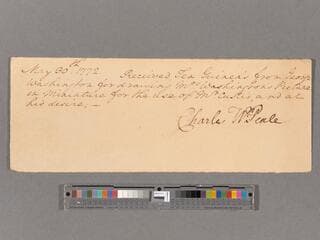 May 30th 1772 Received Ten Guineas from George
Washington for drawing Mrs Washingtons Picture
in Miniature for the Use of Mr Custis and at
his desire, —
Charles Wn Peale